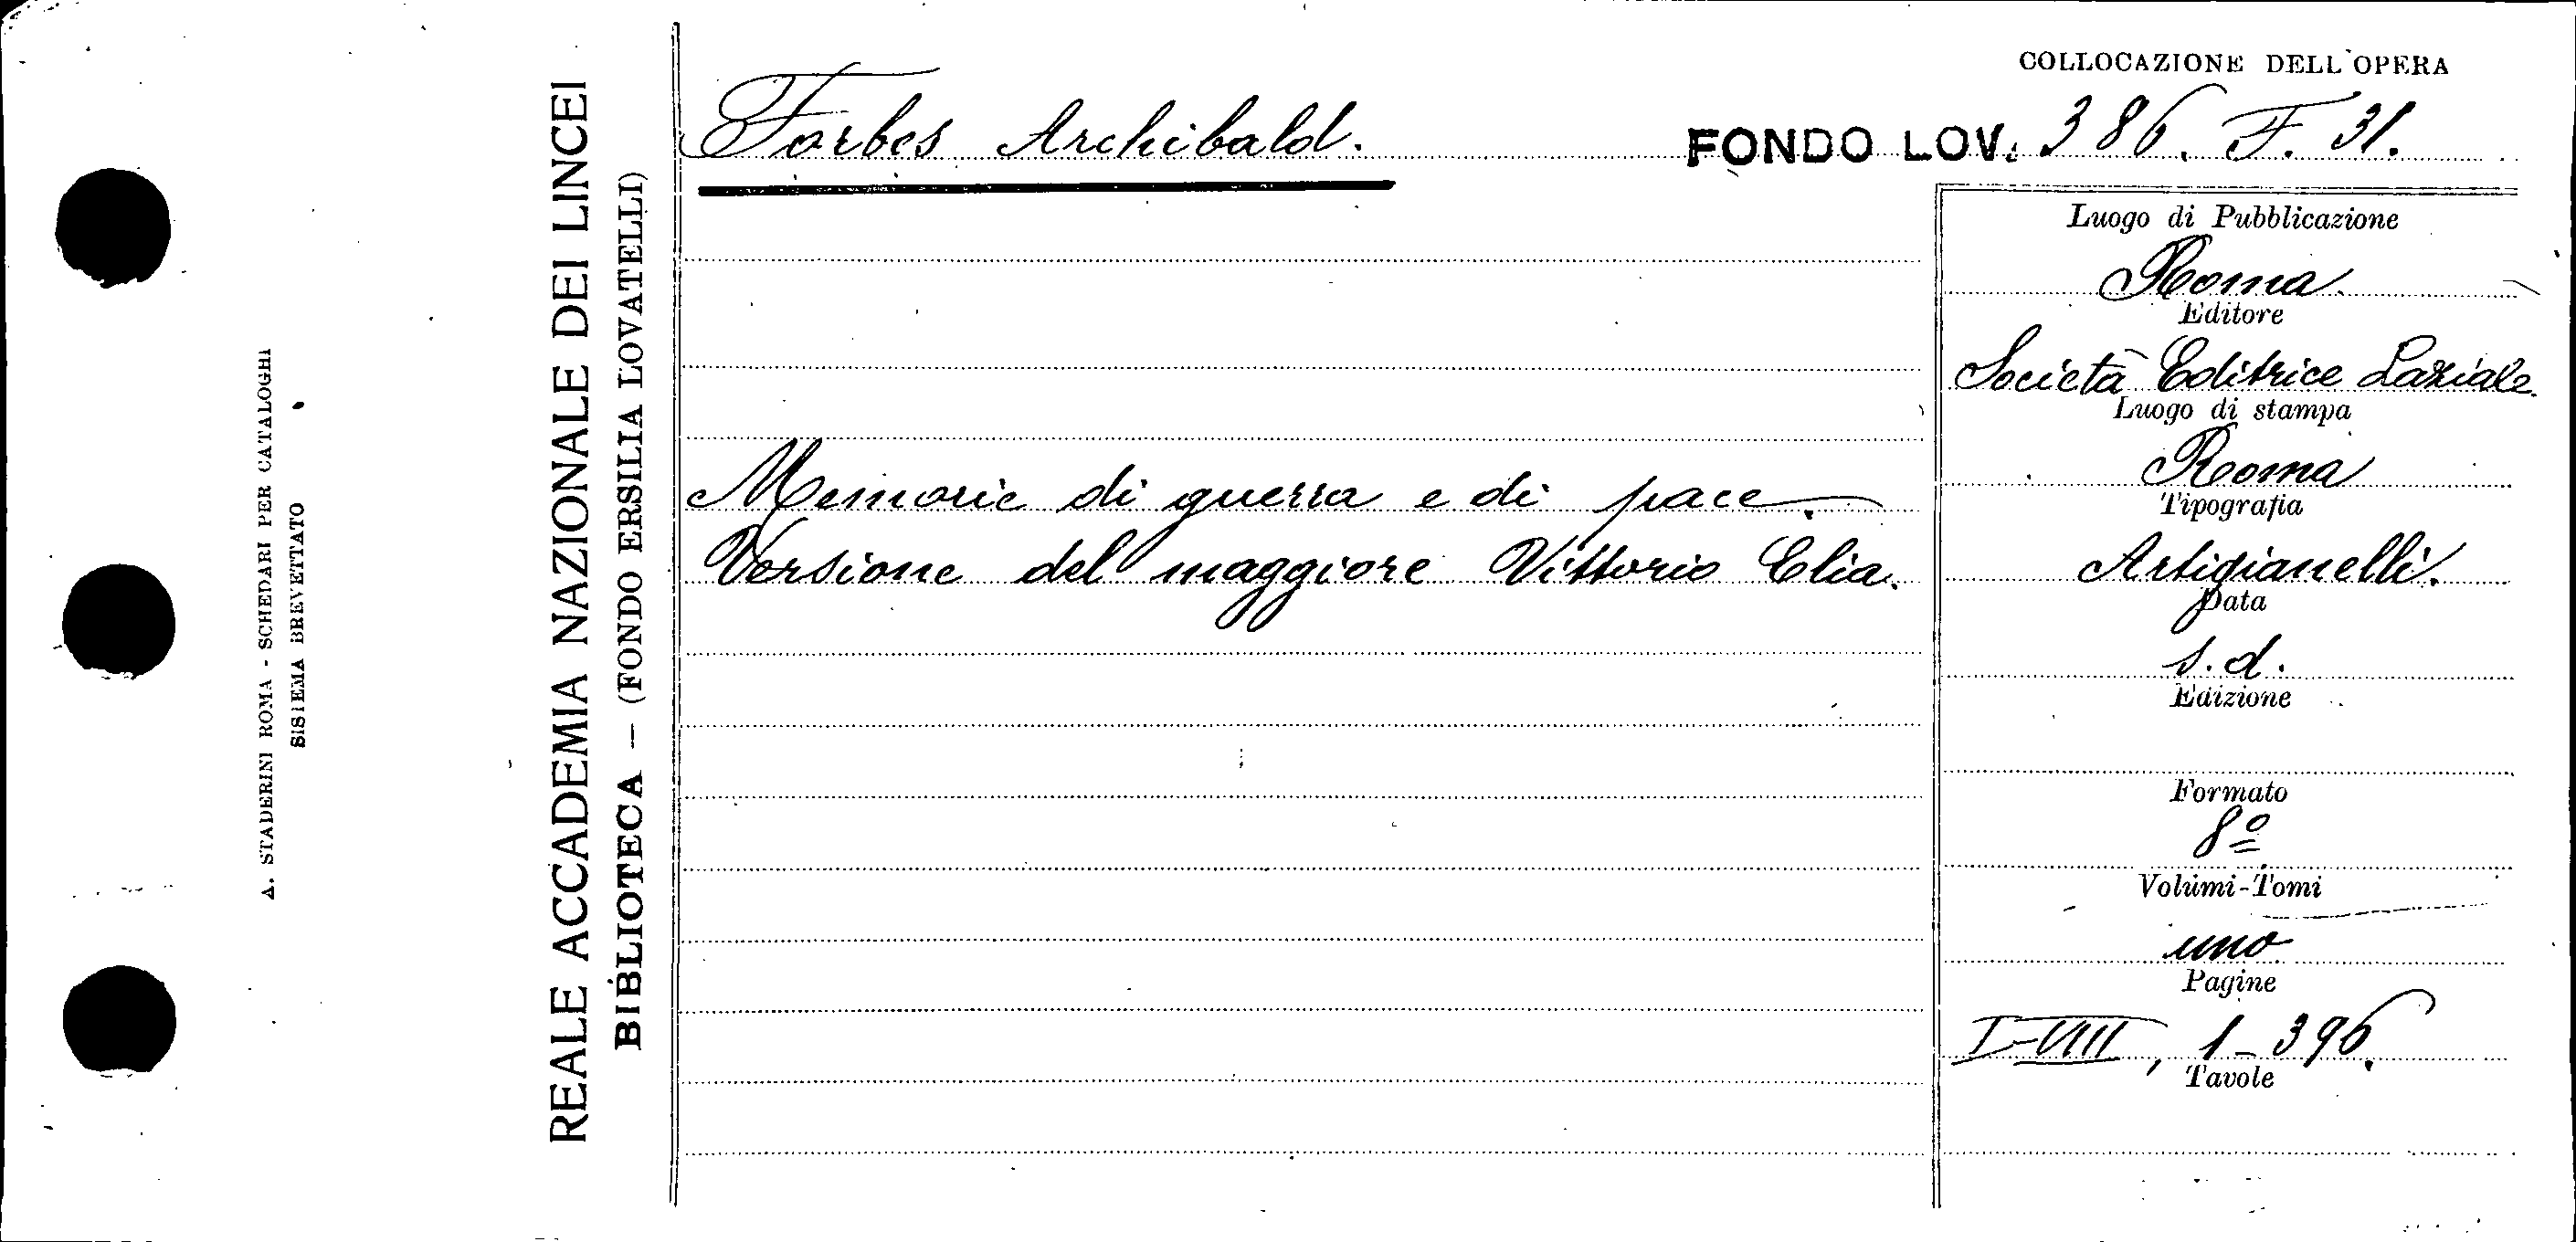 A. STADERINI ROMA - SCHEDARI PER CATALOGHI
SISTEMA BREVETTATO
REALE ACCADEMIA NAZIONALE DEI LINCEI
BIBLIOTECA — (FONDO ERSILIA LOVATELLI)
COLLOCAZIONE DELL'OPERA
Forbes Archibald.
FONDO LOV. 386. F. 31.
Memorie di guerra e di pace.
Versione del maggiore Vittorio Elia.
Luogo di Pubblicazione
Roma
Editore
Società Editrice Laziale.
Luogo di stampa
Roma
Tipografia
Artigianelli.
Data
s.d.
Edizione
Formato
8º
Volumi-Tomi
uno
Pagine
I-VIII, 1-396.
Tavole